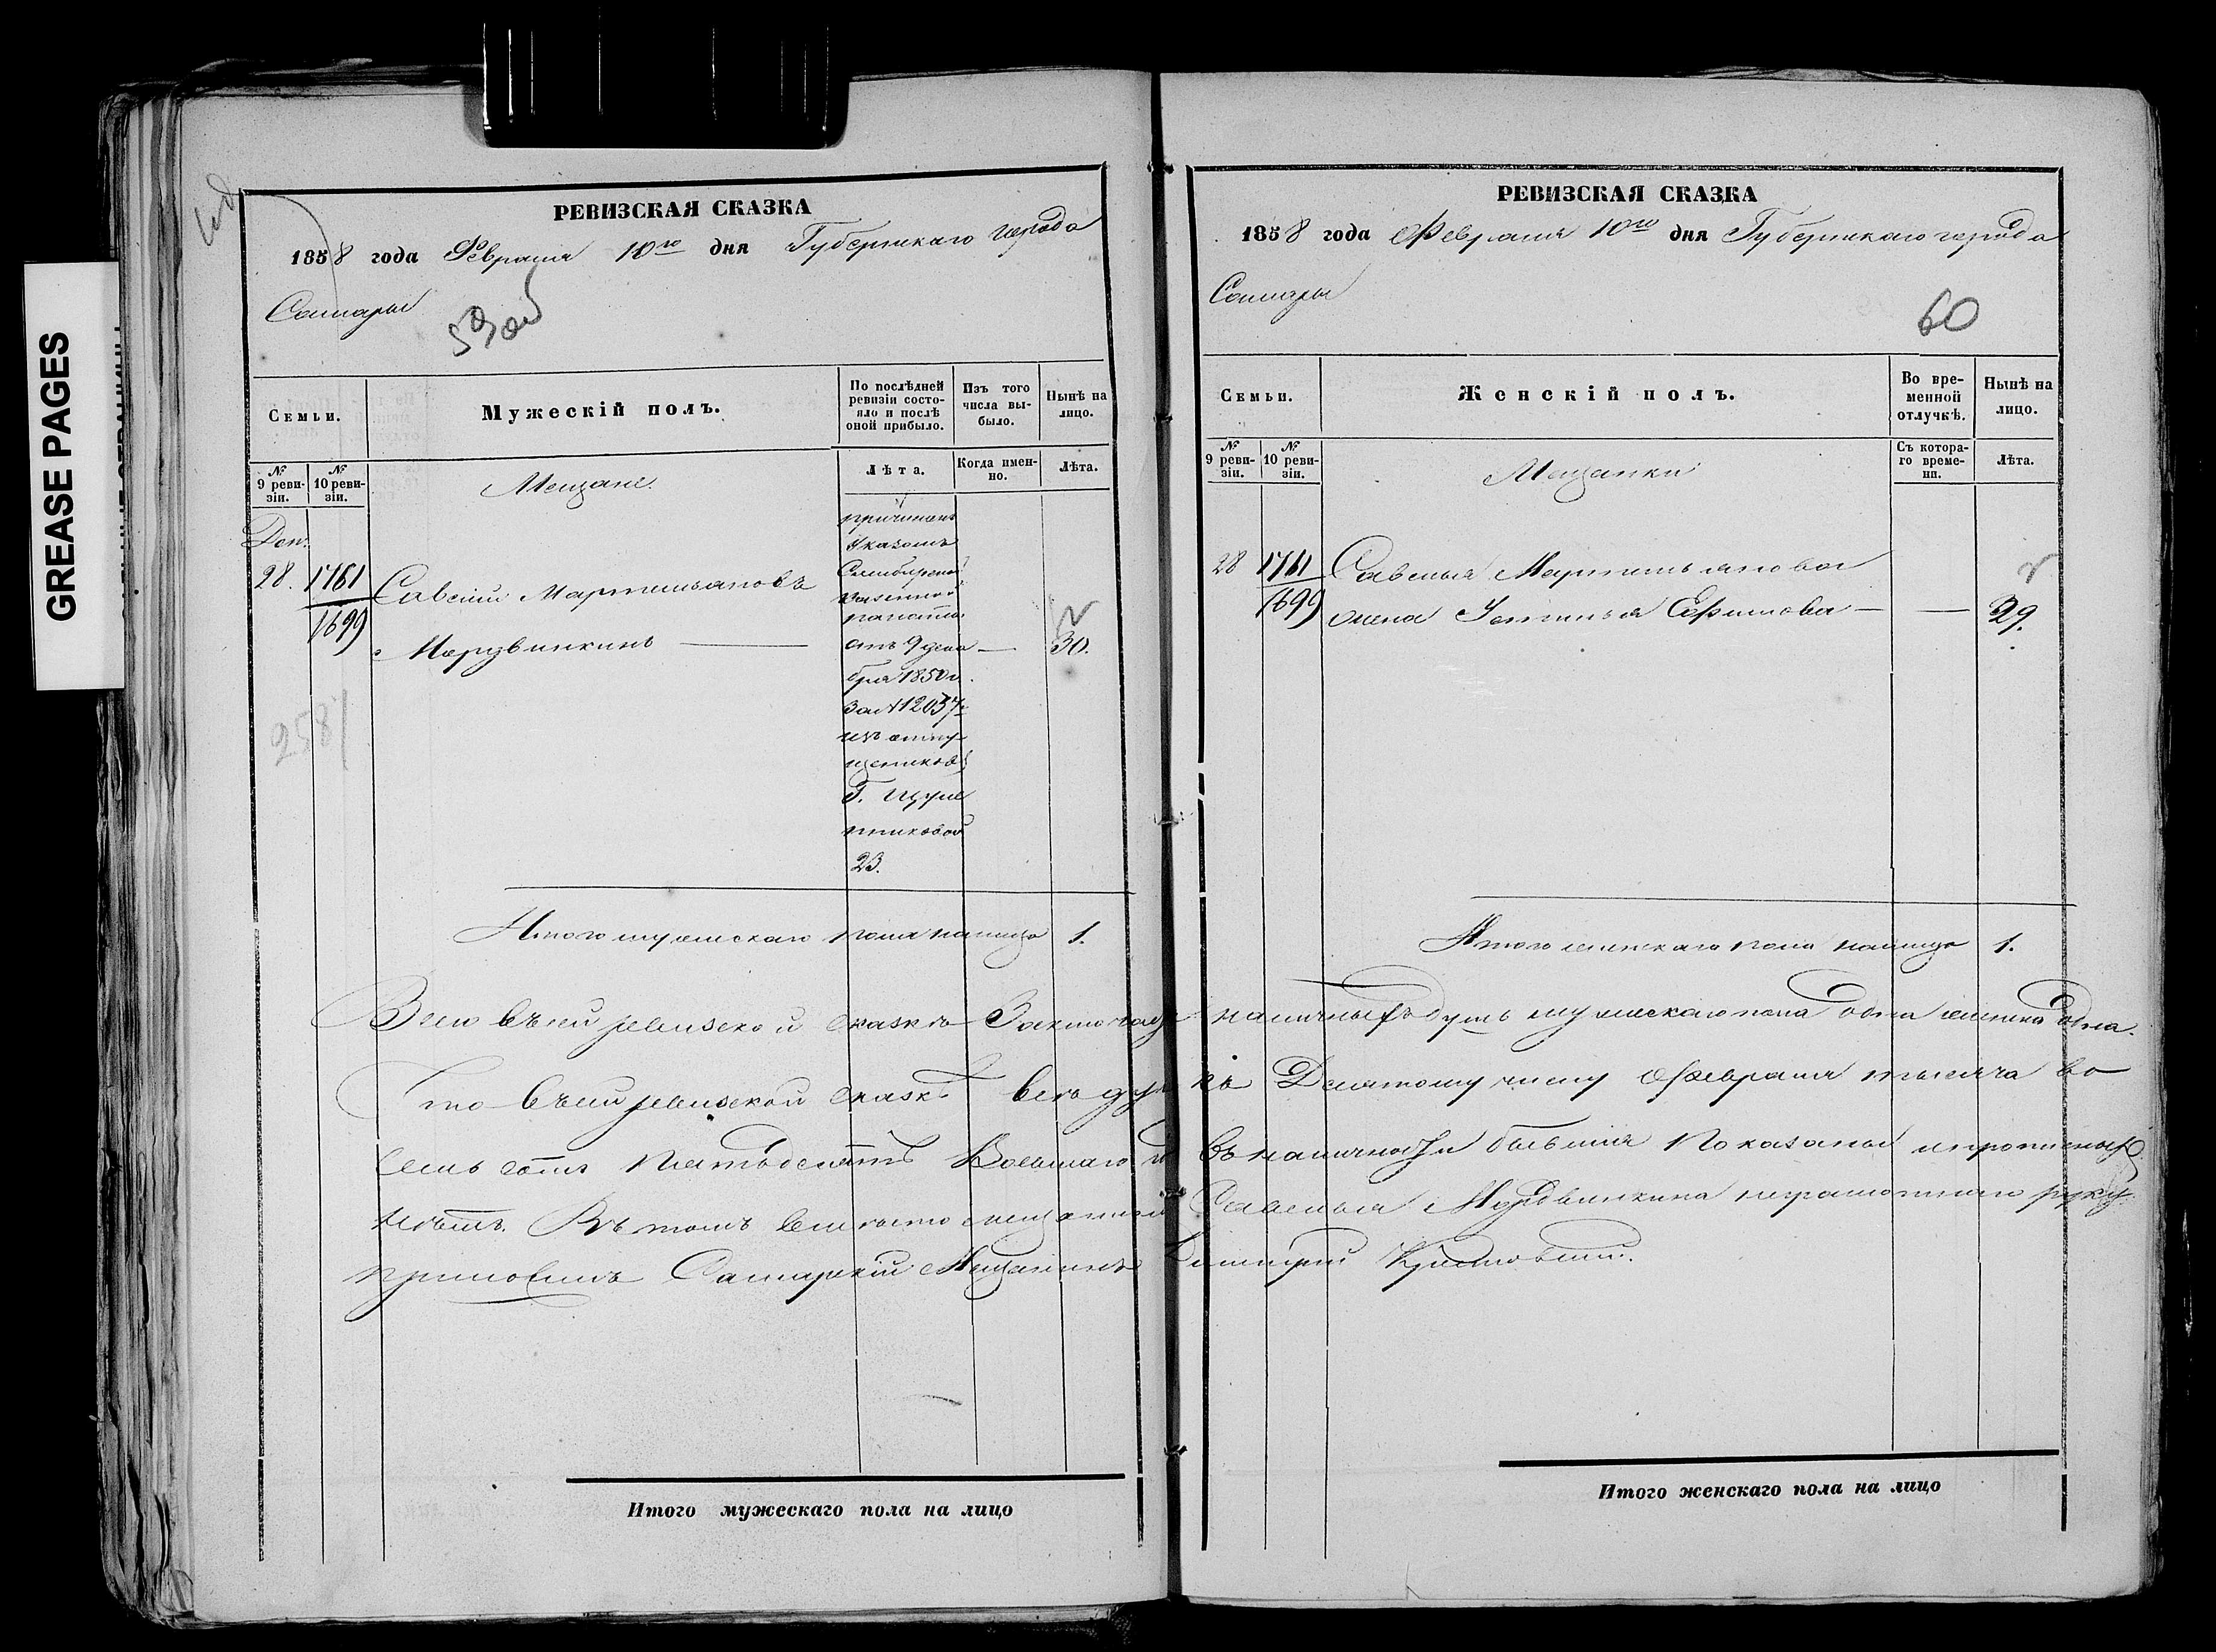 GREASE PAGES
РЕВИЗСКАЯ СКАЗКА
1858 года Февраля 10го дня Губернскаго города
Самары
59об
Семьи.
Мужескій полъ.
По послѣдней ревизіи состояло и послѣ оной прибыло.
Изъ того числа выбыло.
Нынѣ на лицо.
№ 9 ревизіи.
№ 10 ревизіи.
Мещане.
Лѣта.
Когда именно.
Лѣта.
Доп.
28. 1761
1699
Савелій Мартемьяновъ
Мордвинкинъ
причисленъ
Указомъ
Симбирской
казенной
палаты
отъ 9 дека
бря 1850 г.
за № 12037
изъ отпу
щениковъ
Г.
23.
30.
2587
Итого мужескаго пола налицо 1.
Всего въ сей ревизской сказкѣ
Что въ сей ревизской сказкѣ всѣ душ
семь сотъ Пятьдесятъ Восьмаго
нѣтъ. Въ томъ вмѣсто мещанина
приложилъ Самарскій Мещанинъ
Итого мужескаго пола на лицо
РЕВИЗСКАЯ СКАЗКА
1858 года Февраля 10го дня Губернскаго города
Самары
60
Семьи.
Женскій полъ.
Во временной отлучкѣ.
Нынѣ на лицо.
№ 9 ревизіи.
№ 10 ревизіи.
Мещанки
Съ котораго времени.
Лѣта.
28 1761
1699
Савелья Мартемьянова
жена Устинья Ефимова
29.
Итого женскаго пола налицо 1.
наличныхъ душъ мужескаго пола одна женска одна.
къ Десятому числу Февраля тысяча во
въ наличности бывшія Показаны и прописныхъ
Савелья Мордвинкина неграмотнаго руку
Дмитрій
Итого женскаго пола на лицо